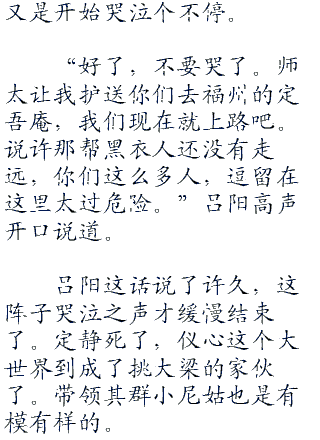 又是开始哭泣个不停。
“好了，不要哭了。师
太让我护送你们去福州的定
吾庵，我们现在就上路吧。
说许那帮黑衣人还没有走
远，你们这么多人，逗留在
这里太过危险。”吕阳高声
开口说道。
吕阳这话说了许久，这
阵子哭泣之声才缓慢结束
了。定静死了，仪心这个大
世界到成了挑大梁的家伙
了。带领其群小尼姑也是有
模有样的。